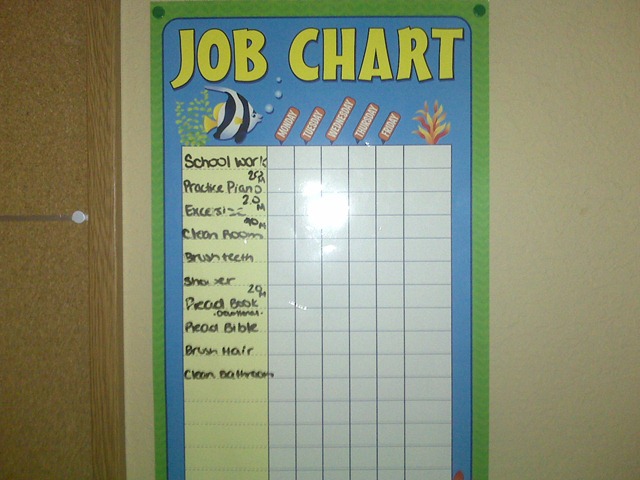 JOB CHART
MONDAY TUESDAY WEDNESDAY THURSDAY FRIDAY
School work
Practice Piano
20 M
Clean Room
Brush teeth
Shower
20 M
Read Book
Read Bible
Brush Hair
Clean Bathroom